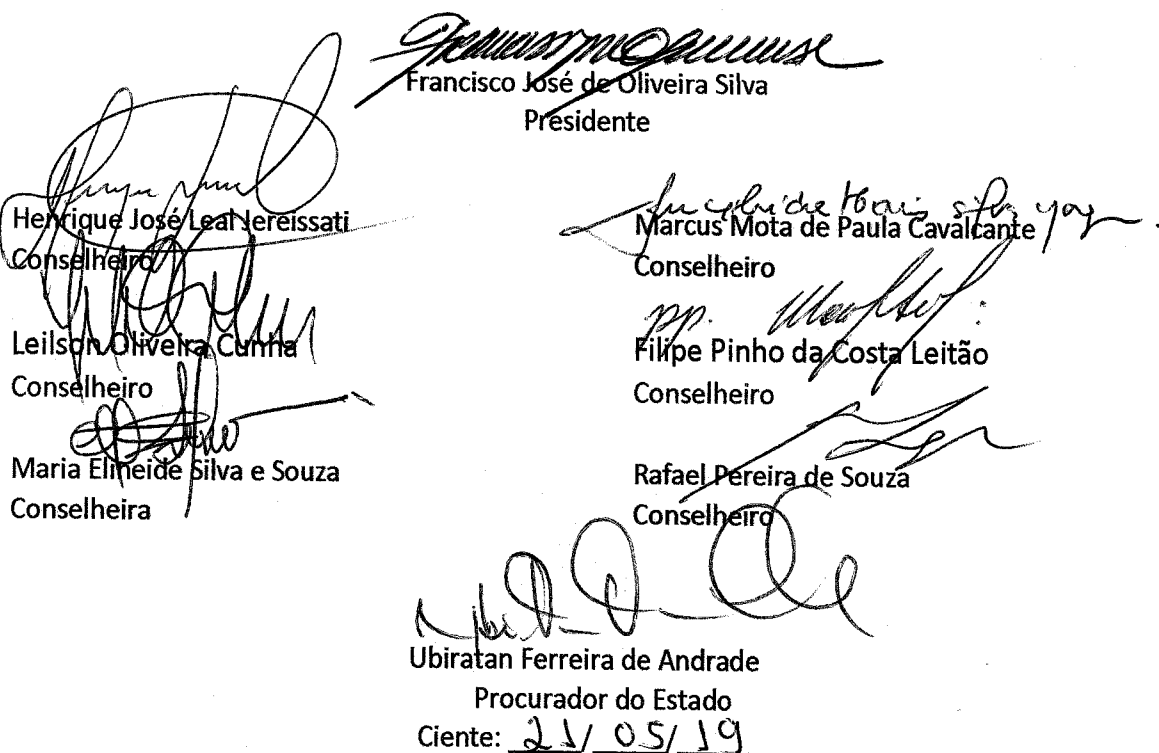 Francisco José de Oliveira Silva
Presidente
Henrique José Leal Jereissati
Conselheiro
Leilson Oliveira Cunha
Conselheiro
Maria Elineide Silva e Souza
Conselheira
Marcus Mota de Paula Cavalcante
Conselheiro
pp.
Filipe Pinho da Costa Leitão
Conselheiro
Rafael Pereira de Souza
Conselheiro
Ubiratan Ferreira de Andrade
Procurador do Estado
Ciente: 21/ 05/ 19